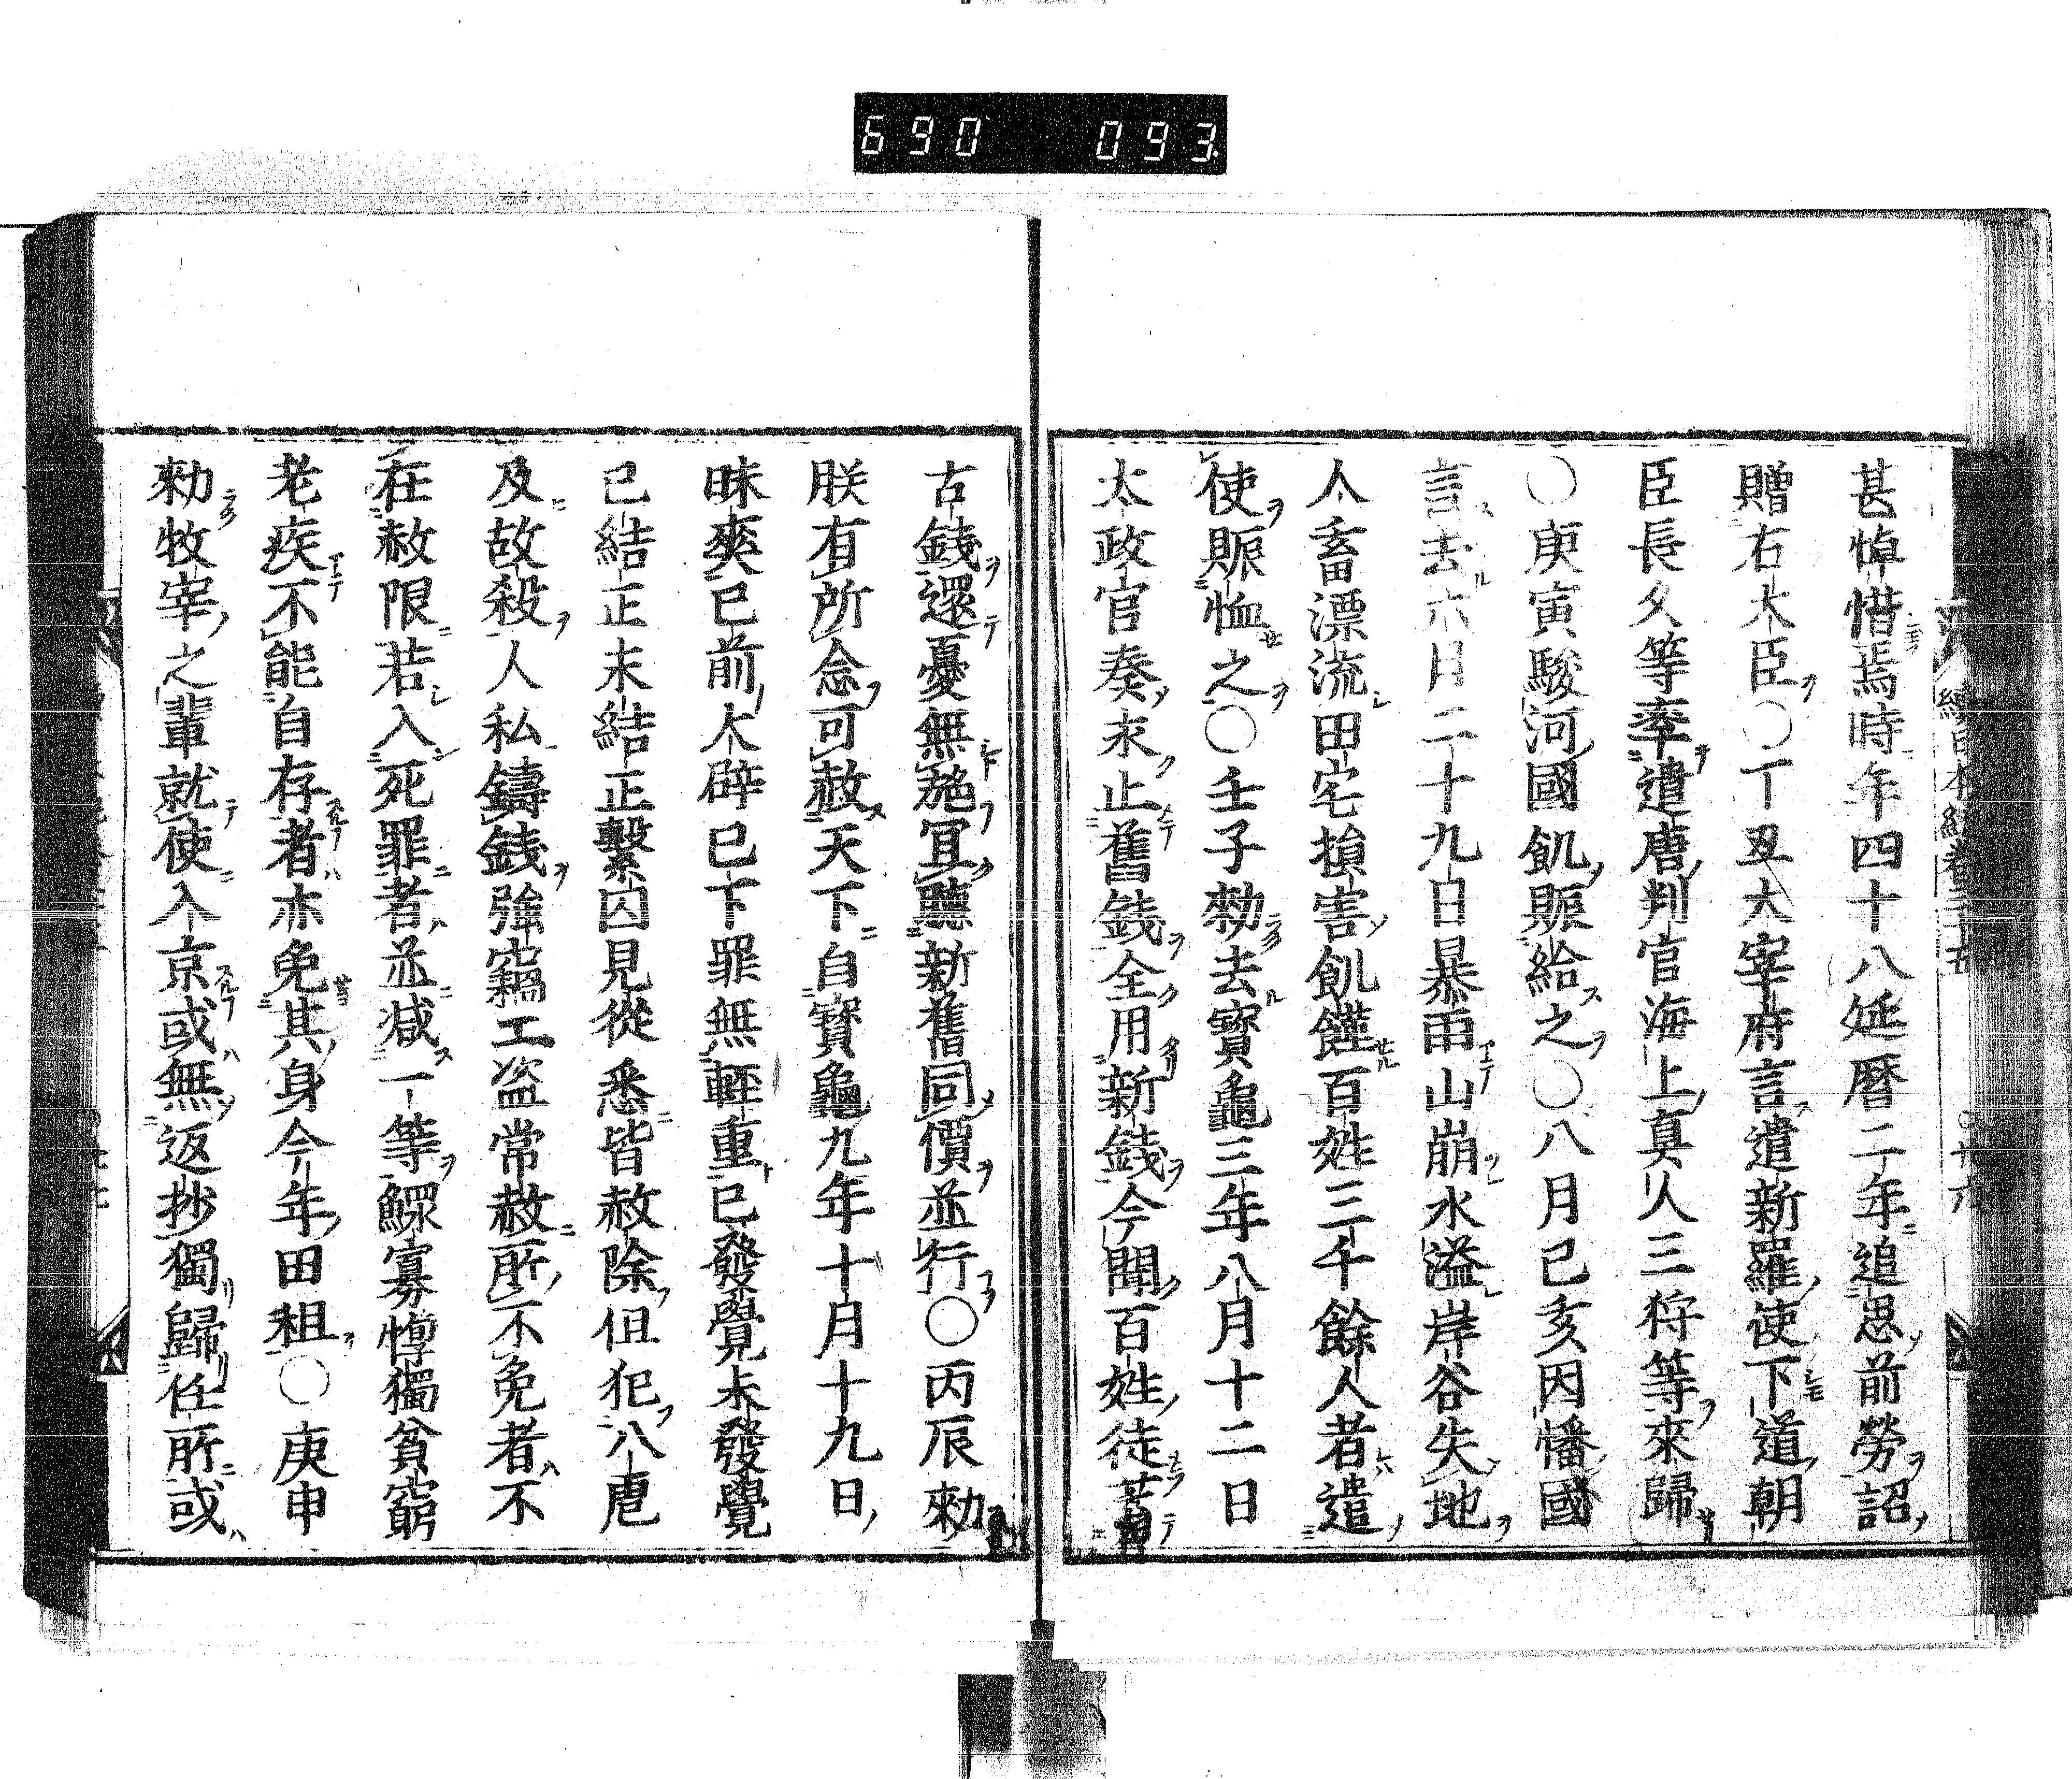 690 093
甚悼惜焉時年四十八延曆二年追思前勞詔
贈右大臣○丁丑大宰府言遣新羅使下道朝
臣長人等率遣唐判官海上真人三狩等來歸
○庚寅駿河國飢賑給之○八月己亥因幡國
言去六月二十九日暴雨山崩水溢岸谷失地
人畜漂流田宅損害飢饉百姓三千餘人者遣
使賑恤之○壬子勅去寶龜三年八月十二日
太政官奏永止舊錢全用新錢今聞百姓徒蓄
古錢還憂無施宜聽新舊同價並行○丙辰勅
朕有所念可赦天下自寶龜九年十月十九日
昧爽已前大辟已下罪無輕重已發覺未發覺
已結正未結正繫囚見從悉皆赦除但犯八虐
及故殺人私鑄錢強竊二盜常赦所不免者不
在赦限若入死罪者並減一等鰥寡惸獨貧窮
老疾不能自存者亦免其身今年田租○庚申
勅牧宰之輩就使入京或無返抄獨歸任所或